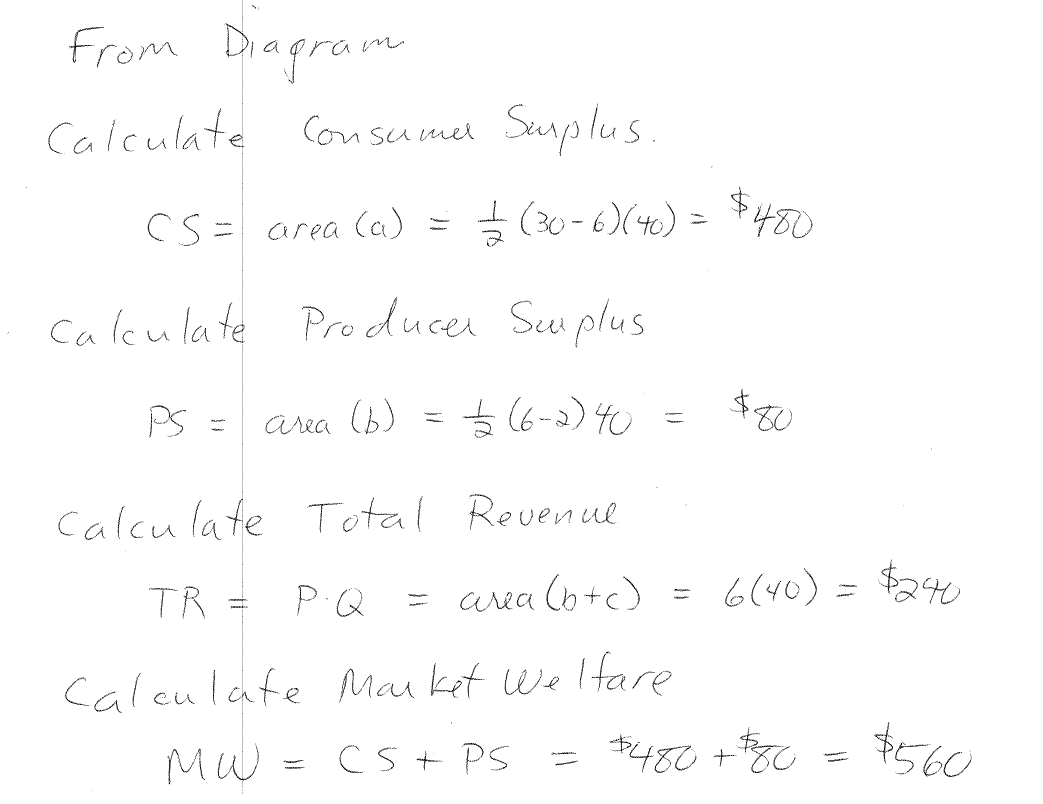 From Diagram
Calculate Consumer Surplus.
CS = area (a) = 1/2 (30-6)(40) = $480
Calculate Producer Surplus
PS = area (b) = 1/2 (6-2) 40 = $80
Calculate Total Revenue
TR = P·Q = area (b+c) = 6(40) = $240
Calculate Market Welfare
MW = CS + PS = $480 + $80 = $560